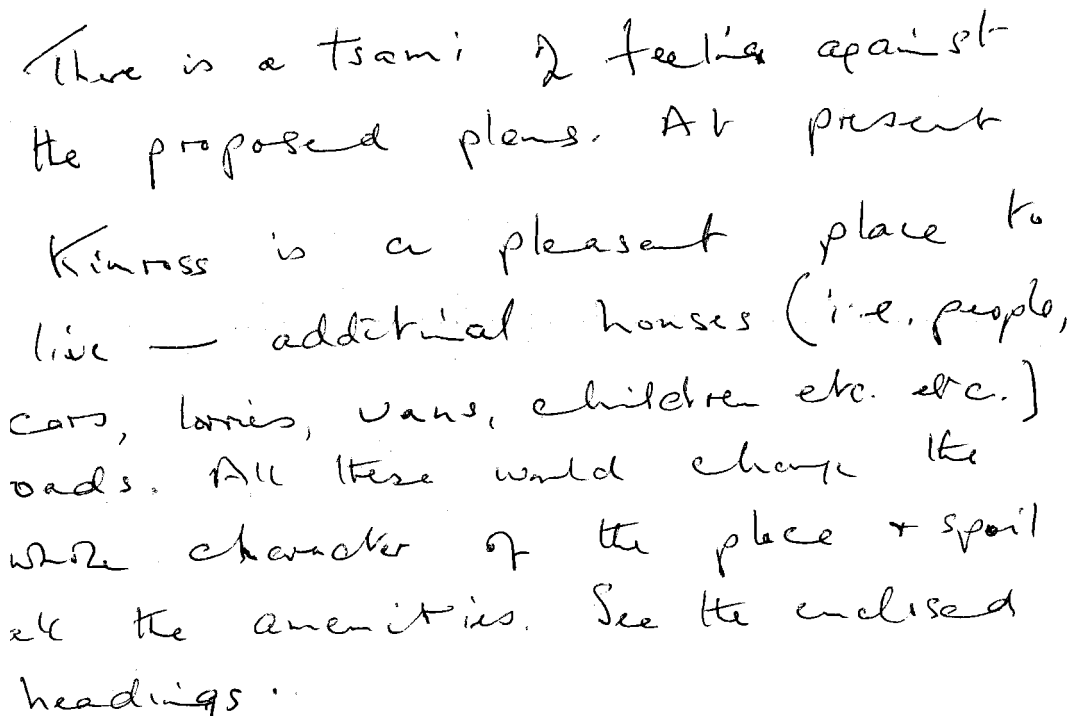 There is a tsami of feeling against
the proposed plans. At present
Kinross is a pleasant place to
live — additional houses (i.e. people,
cars, lorries, vans, children etc. etc.)
oads. All these would change the
whole character of the place + spoil
all the amenities. See the enclosed
headings.